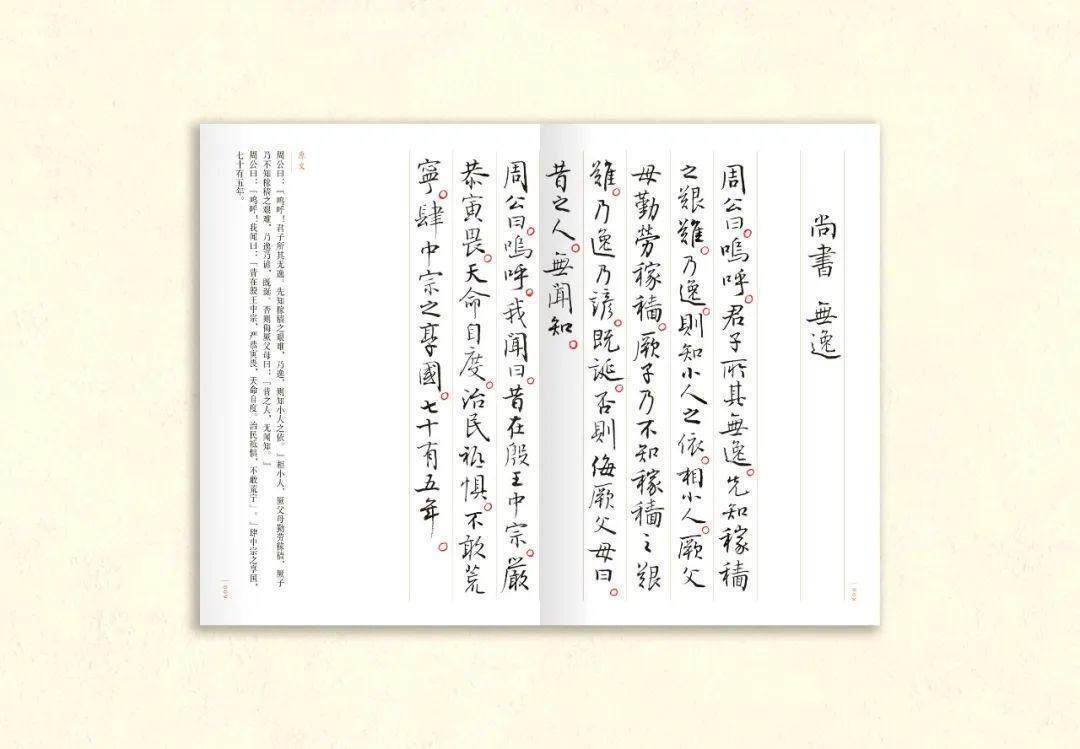 尚書 無逸
周公曰。嗚呼。君子所其無逸。先知稼穡
之艱難。乃逸。則知小人之依。相小人。厥父
母勤勞稼穡。厥子乃不知稼穡之艱
難。乃逸乃諺。既誕。否則侮厥父母曰。
昔之人。無聞知。
008
周公曰。嗚呼。我聞曰。昔在殷王中宗。嚴
恭寅畏。天命自度。治民祗懼。不敢荒
寧。肆中宗之享國。七十有五年。
原文
周公曰：「呜呼！君子所其无逸。先知稼穑之艰难，乃逸，则知小人之依。相小人，厥父母勤劳稼穑，厥子
乃不知稼穑之艰难，乃逸乃谚，既诞。否则侮厥父母曰：『昔之人，无闻知。』
周公曰：「呜呼！我闻曰：『昔在殷王中宗，严恭寅畏，天命自度，治民祗惧，不敢荒宁』。」肆中宗之享国，
七十有五年。
009